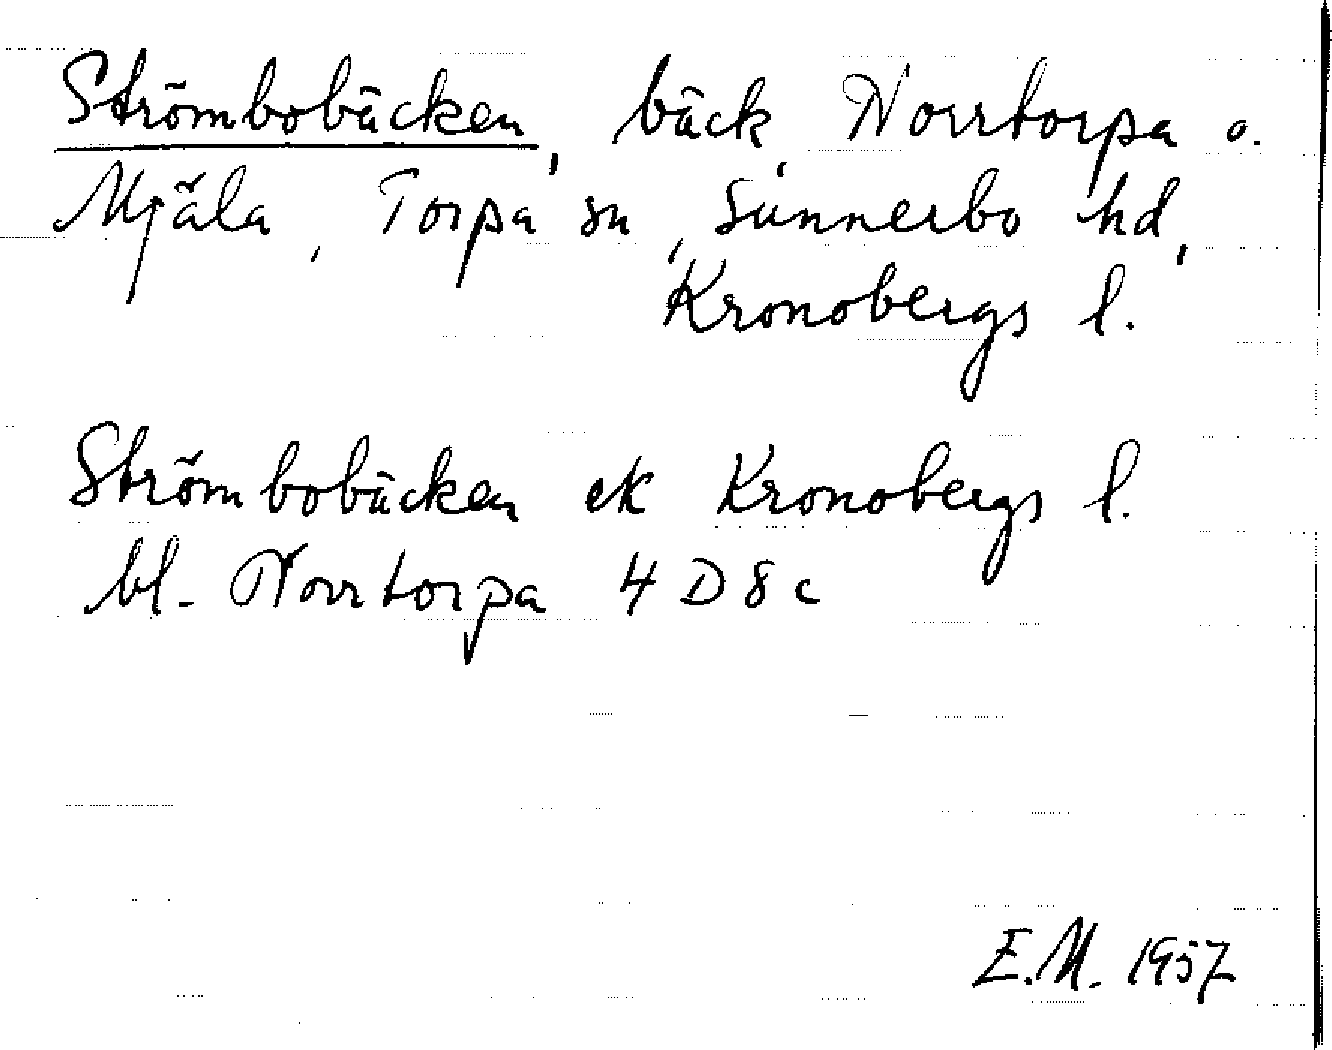 Strömbobäcken, bäck, Norrtorpa o.
Mjäla, Torpa sn, Sunnerbo hd,
Kronobergs l.
Strömbobäcken ek Kronobergs l.
bl. Norrtorpa 4 D 8 c
E.M. 1957